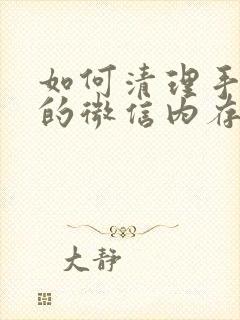 如何清理手
的微信内存
大静